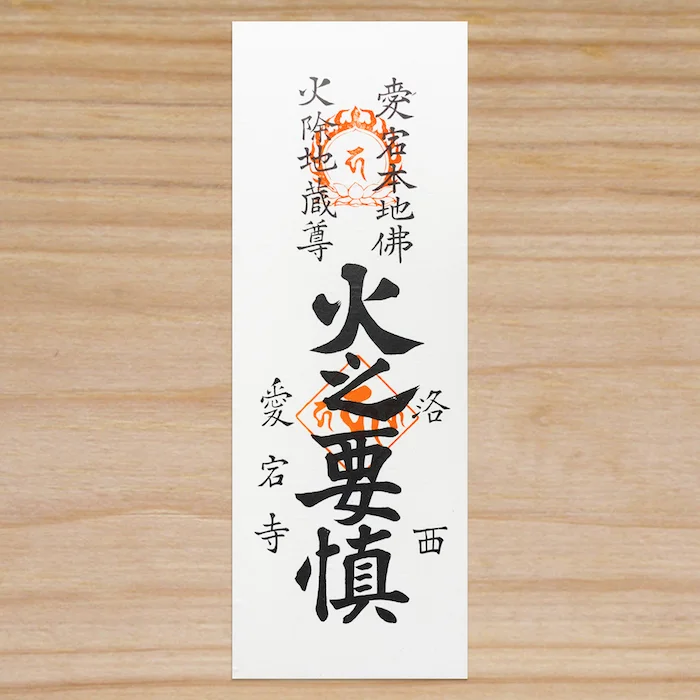 愛宕本地佛
火除地蔵尊
火之要慎
洛西
愛宕寺